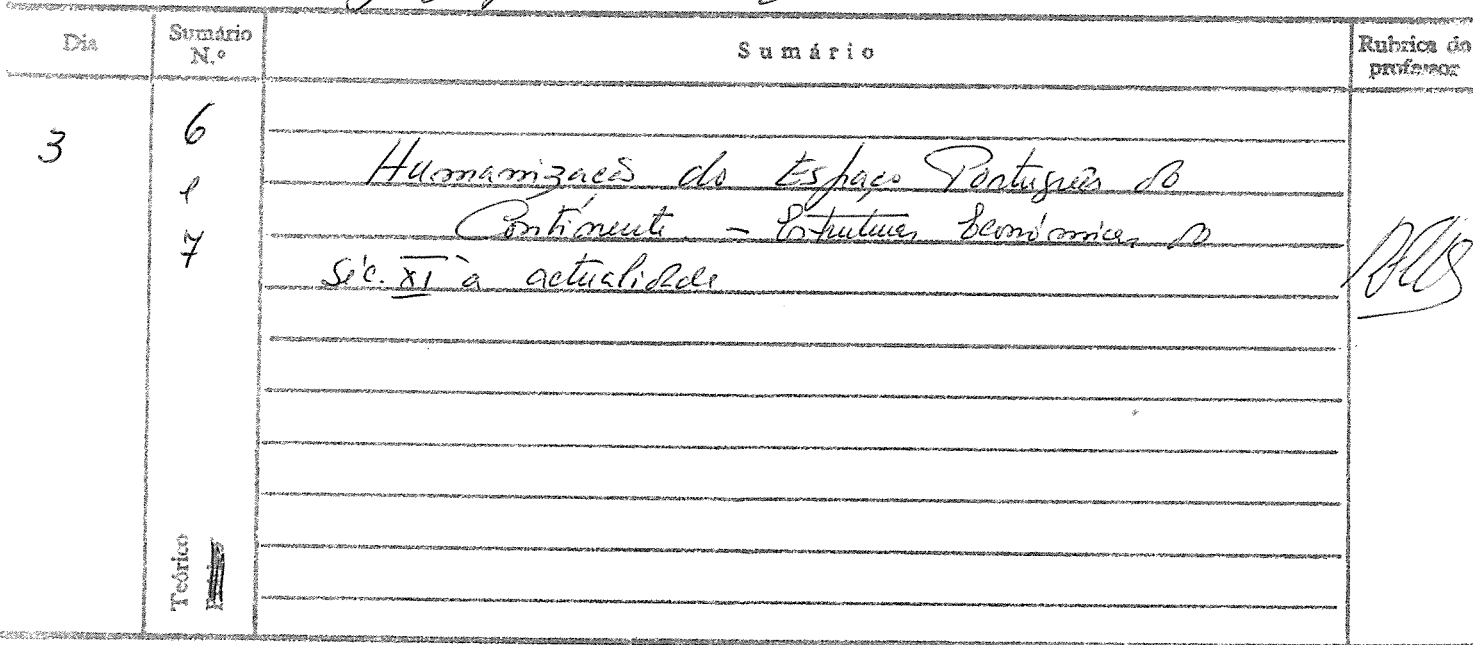 Dia
Sumário
N.º
Sumário
Rubrica do
professor
3
6
e
7
Humanização do Espaço Português do
Continente - Estruturas Económicas do
Séc. XI à actualidade
Teórico